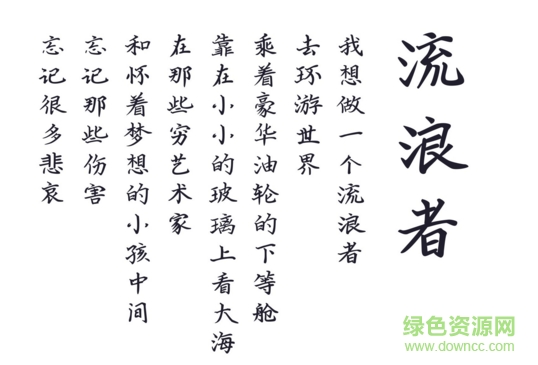 流浪者
我想做一个流浪者
去环游世界
乘着豪华油轮的下等舱
靠在小小的玻璃上看大海
在那些穷艺术家
和怀着梦想的小孩中间
忘记那些伤害
忘记很多悲哀
绿色资源网
www.downcc.com